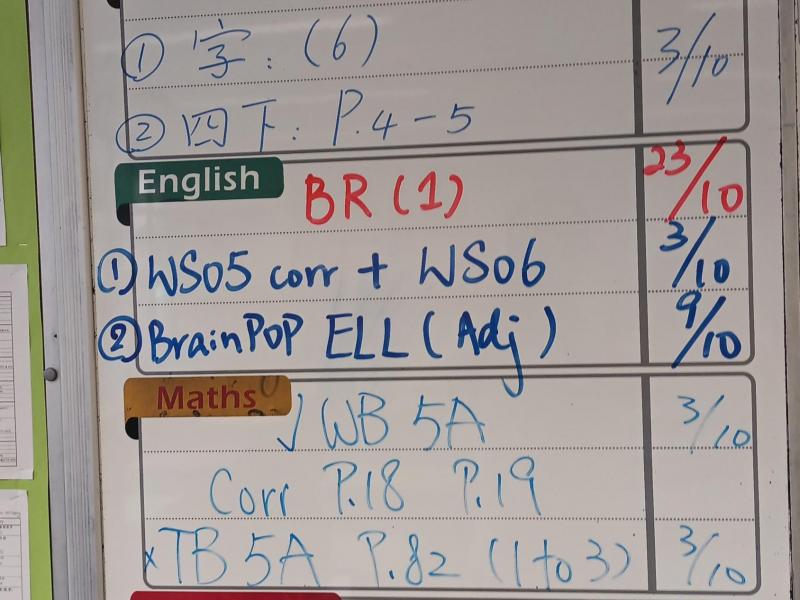 ① 字：(6) 3/10
② 四下：P.4-5
English
BR (1) 23/10
① WS05 corr + WS06 3/10
② BrainPOP ELL (Adj) 9/10
Maths
√ WB 5A 3/10
Corr P.18 P.19
x TB 5A P.82 (1 to 3) 3/10